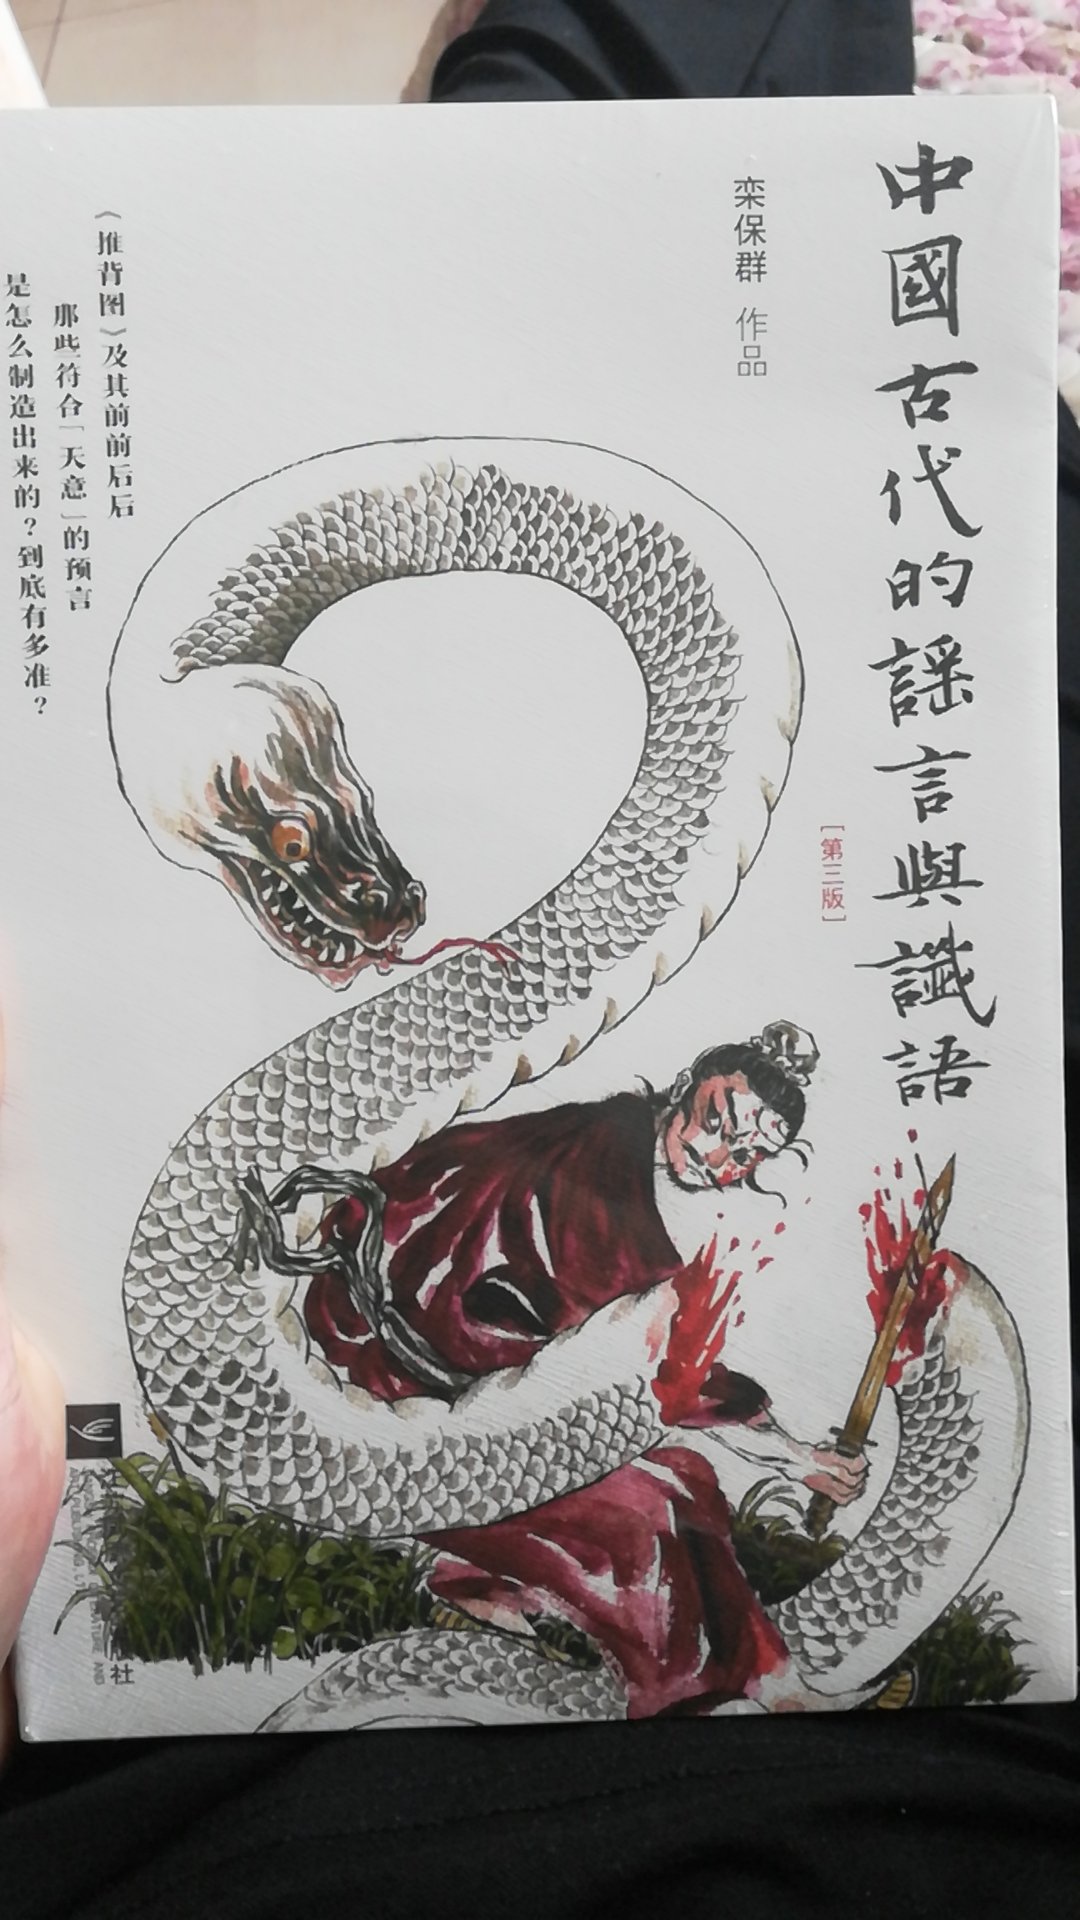 中國古代的謡言與讖語
[第三版]
栾保群 作品
《推背图》及其前前后后
那些符合「天意」的预言
是怎么制造出来的？到底有多准？
社